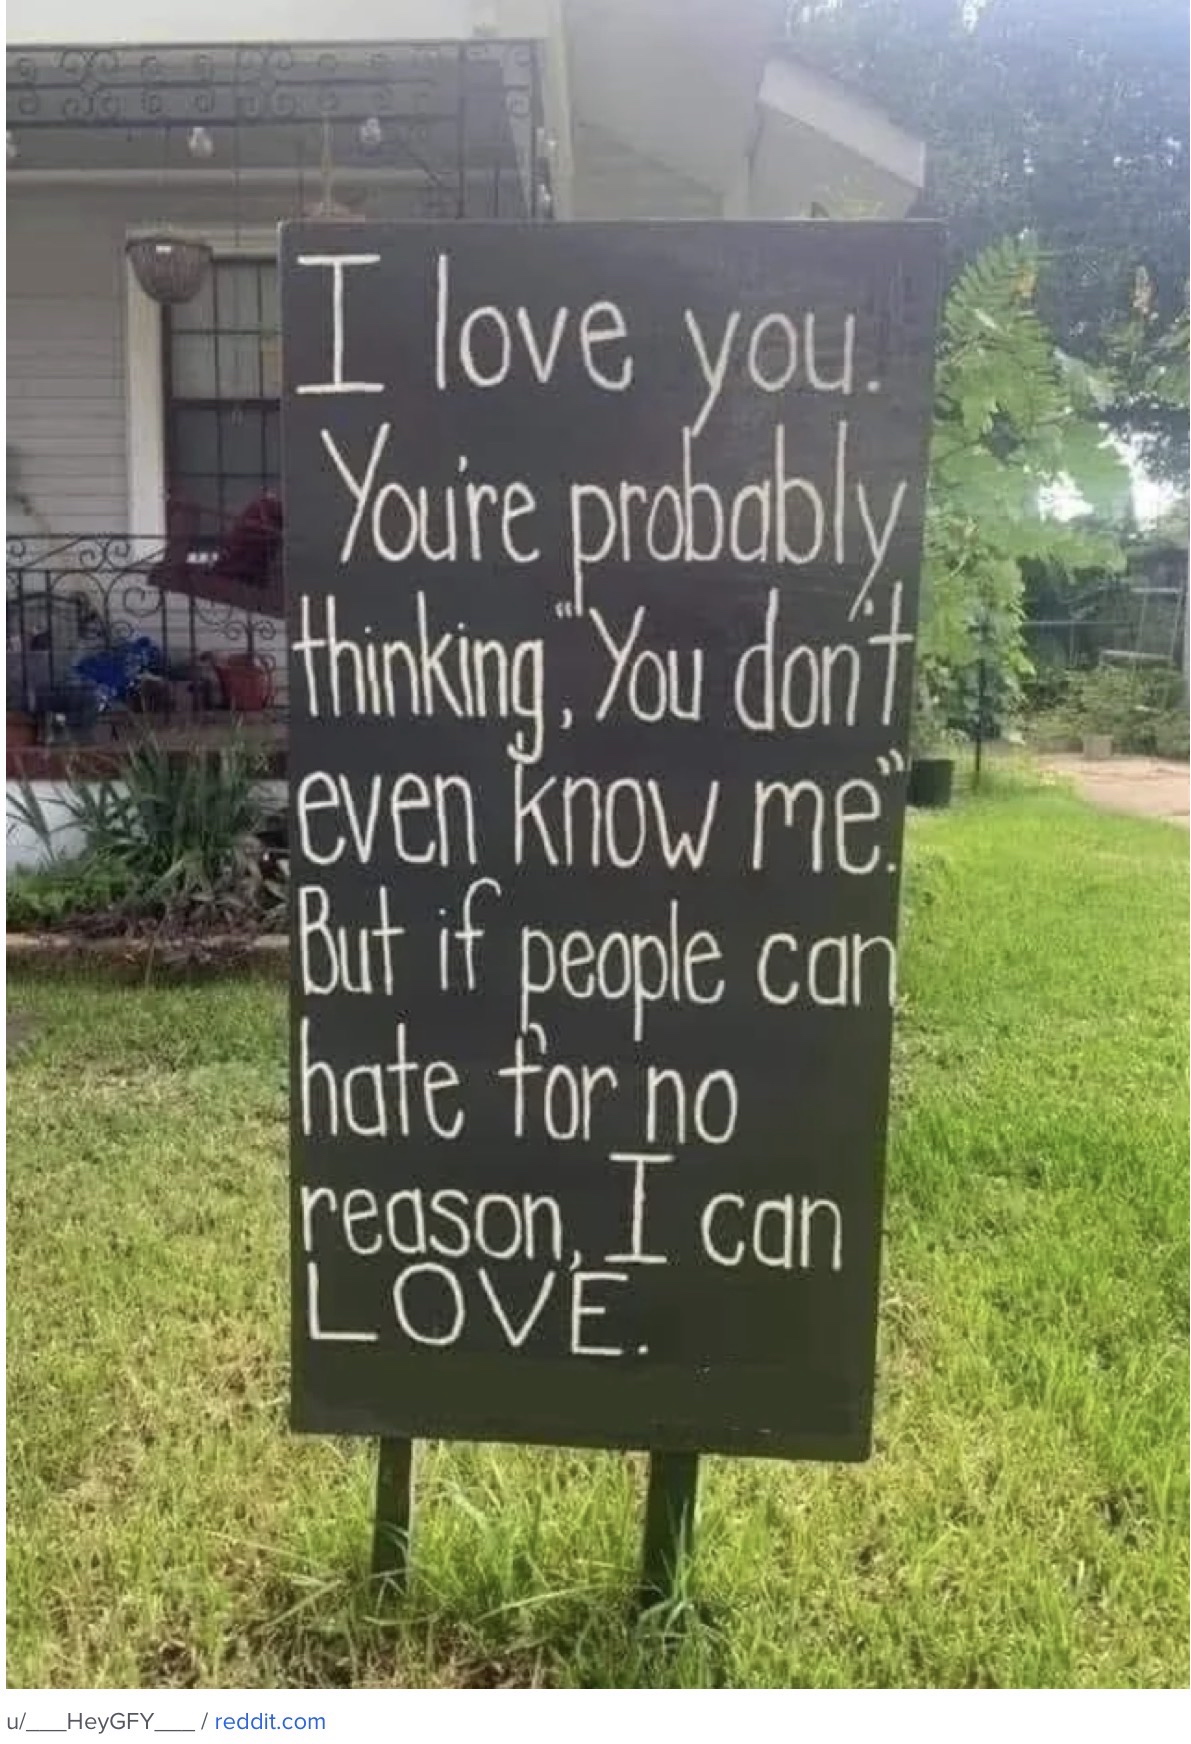 I love you.
You're probably
thinking, "You don't
even know me".
But if people can
hate for no
reason, I can
LOVE.
u/___HeyGFY___ / reddit.com